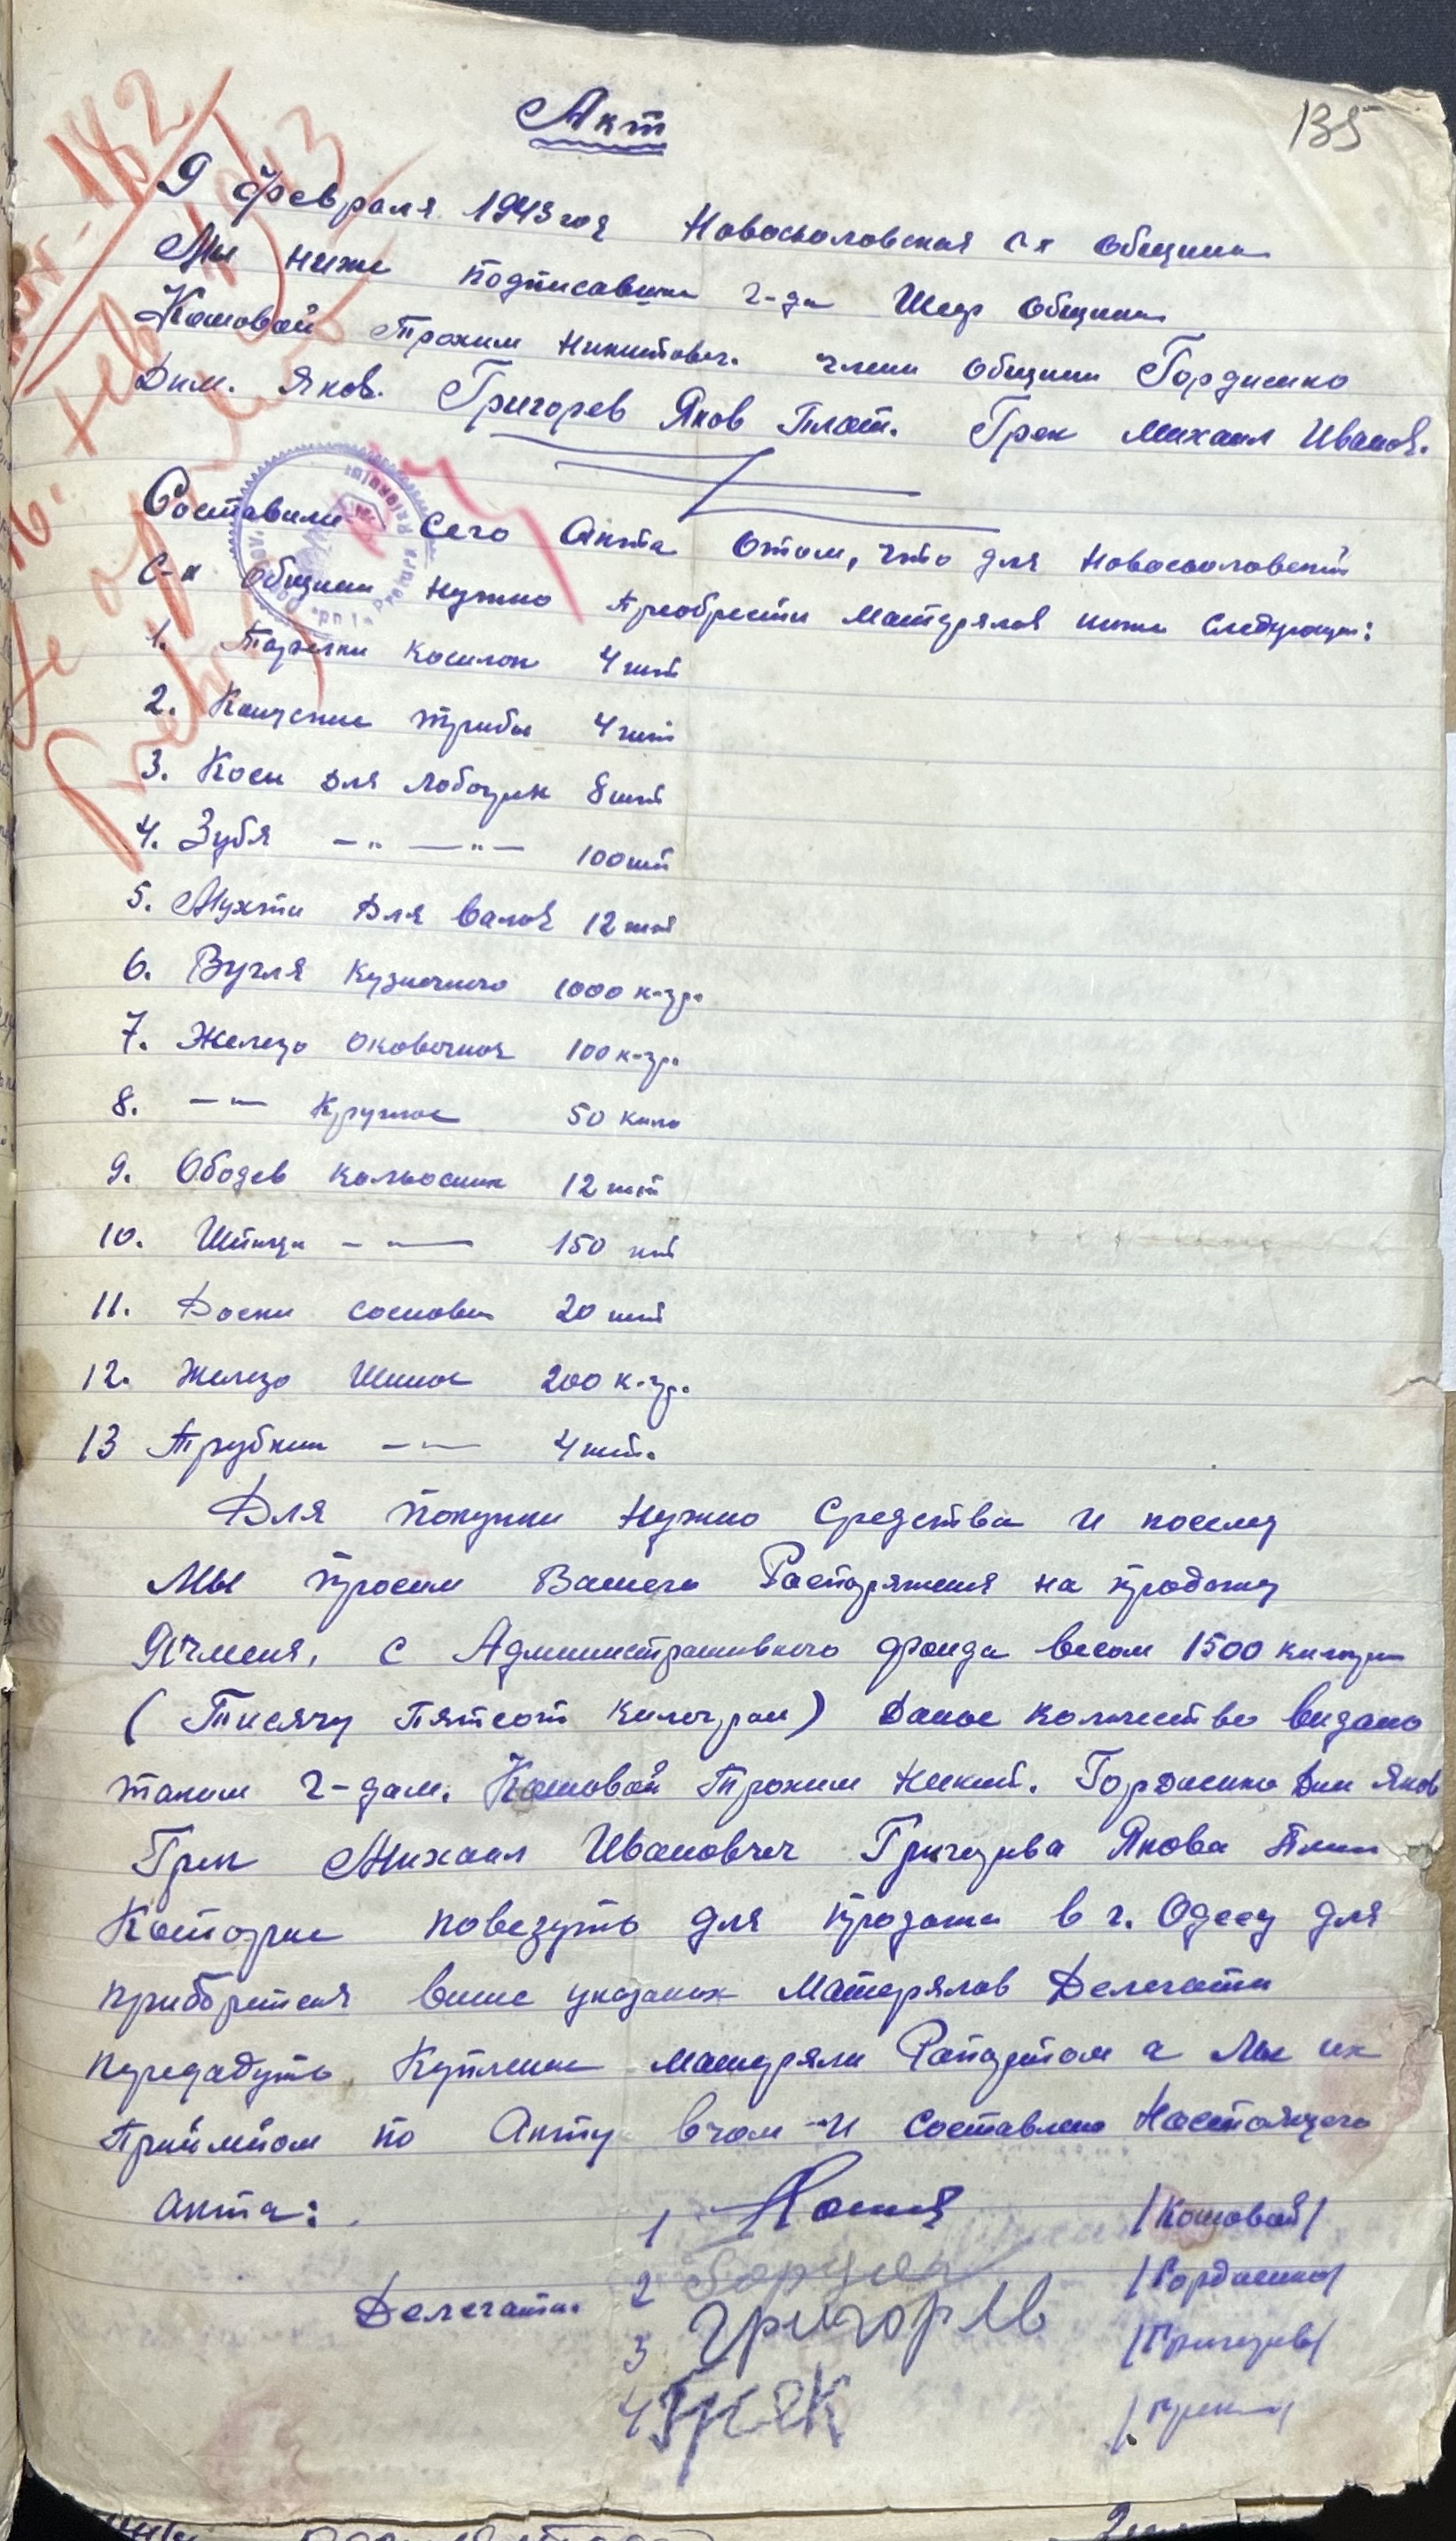 135
Акт
9 февраля 1943 год Новоселовская с х Община
Мы ниже подписавши г-да Шеф Общины
Кошовой Трохим Никитович. члени Общини Гордиенко
Дим. Яков. Григорев Яков Плат. Грек Михаил Иванов.
Составили сего Акта отом, что для Новоселовской
С-х Общини нужно приобрести Матерялов ниже следующи:
1. Тарелки косилок 4 шт
2. Конусние триби 4 шт
3. Коси для лобогрек 8 шт
4. Зубя —"— —"— 100 шт
5. Мухти для валов 12 шт
6. Вугля кузнечного 1000 к-гр.
7. Железо оковочное 100 к-гр.
8. —"— Круглое 50 кило
9. Ободев кольосник 12 шт
10. Шпици —"— 150 шт
11. Доски соснови 20 шт
12. Железо Шиное 200 к-гр.
13 Трубкии —"— 4 шт.
Для покупки нужно средства и
Мы просим Вашего Распоряжения на продажу
Ячменя, с Административного фонда весом 1500 килогрм
( Тисячу Пятсот килограм ) Даное количество видано
таким г-дам. Кошовой Трохим Никит. Гордиенко Дим Яков
Грек Михаил Ивановеч Григорева Якова Плат
Которие повезуть для продажи в г. Одессу для
приобритения више указаних Матерялов Делегати
передадуть Купление матеряли Рапортом а Мы их
Приймйом по Акту вчом и составлено Настоящего
Акта:
1 /Кошовой/
Делегати. 2 /Гордиенко/
3 Григорев /Григорев/
4 Грек /Грек/